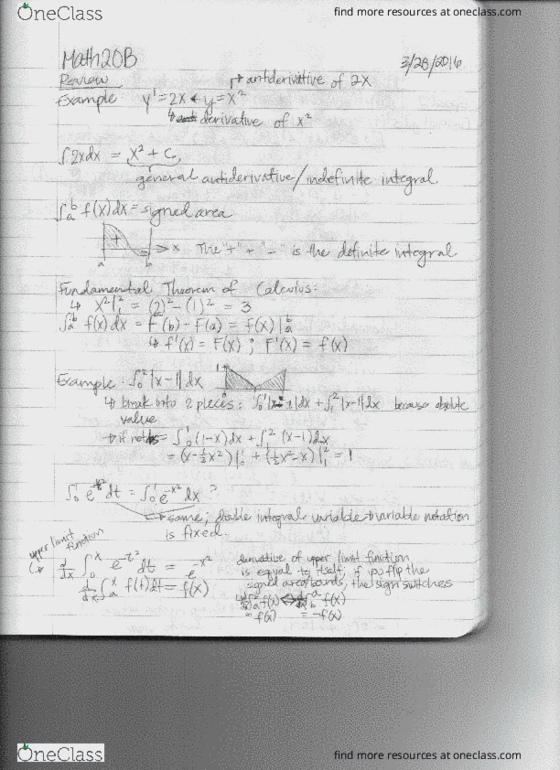 OneClass
find more resources at oneclass.com
Math20B
3/28/2016
Review
↱ antiderivative of 2x
Example y' = 2x ← y = x²
↳ derivative of x²
∫2xdx = x² + C,
general antiderivative/indefinite integral
∫ₐᵇ f(x)dx = signed area
+ - > x The "+" + "-" is the definite integral
a b
Fundamental Theorem of Calculus:
↳ x²|₁² = (2)² - (1)² = 3
∫ₐᵇ f(x)dx = F(b) - F(a) = f(x)|ₐᵇ
↳ f'(x) = F(x) ; F'(x) = f(x)
Example: ∫₀² |x-1| dx
↳ break into 2 pieces: ∫₀¹ |x-1|dx + ∫₁² |x-1|dx because absolute
value
= ∫₀¹ (1-x)dx + ∫₁² (x-1)dx
= (x - ½x²)|₀¹ + (½x² - x)|₁² = 1
∫₀¹ e^-t² dt = ∫₀¹ e^-x² dx ?
same; integral variable notation
is fixed
upper limit
function
d/dx ∫₀ˣ e^-t² dt = e^-x²
d/dx ∫ₐˣ f(t)dt = f(x)
derivative of upper limit function
is equal to itself; if you flip the
signed area bounds, the sign switches
f(x) ↔ f(x)
= f(x) = -f(x)
OneClass
find more resources at oneclass.com